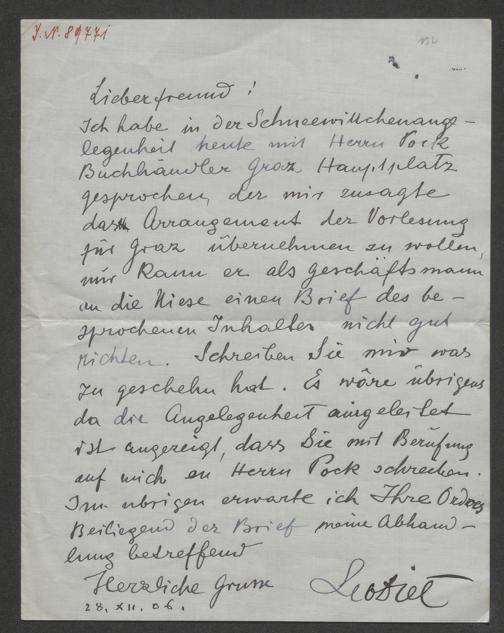 J.N. 89771
Lieber freund !
Ich habe in der Schneewittchenange-
legenheit heute mit Herrn Pock
Buchhändler Graz Hauptplatz
gesprochen, der mir zusagte
das Arrangement der Vorlesung
für Graz übernehmen zu wollen,
nur kann er als geschäftsmann
an die Niese einen Brief des be-
sprochenen Inhaltes nicht gut
richten. Schreiben Sie mir was
zu geschehn hat. Es wäre übrigens
da die Angelegenheit eingeleitet
ist angezeigt, dass Sie mit Berufung
auf mich an Herrn Pock schreiben.
Im übrigen erwarte ich Ihre Ordres
Beiliegend der Brief meine Abhand-
lung betreffend
Herzliche Grüsse
28. XII. 06.